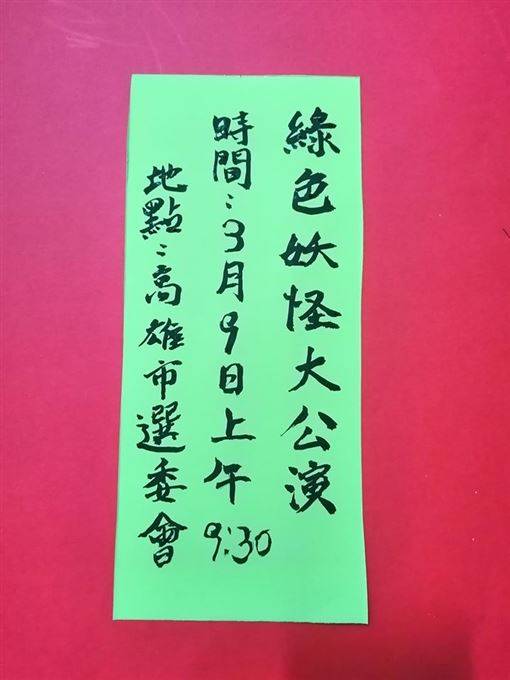 綠色妖怪大公演
時間:3月9日上午9:30
地點:高雄市選委會